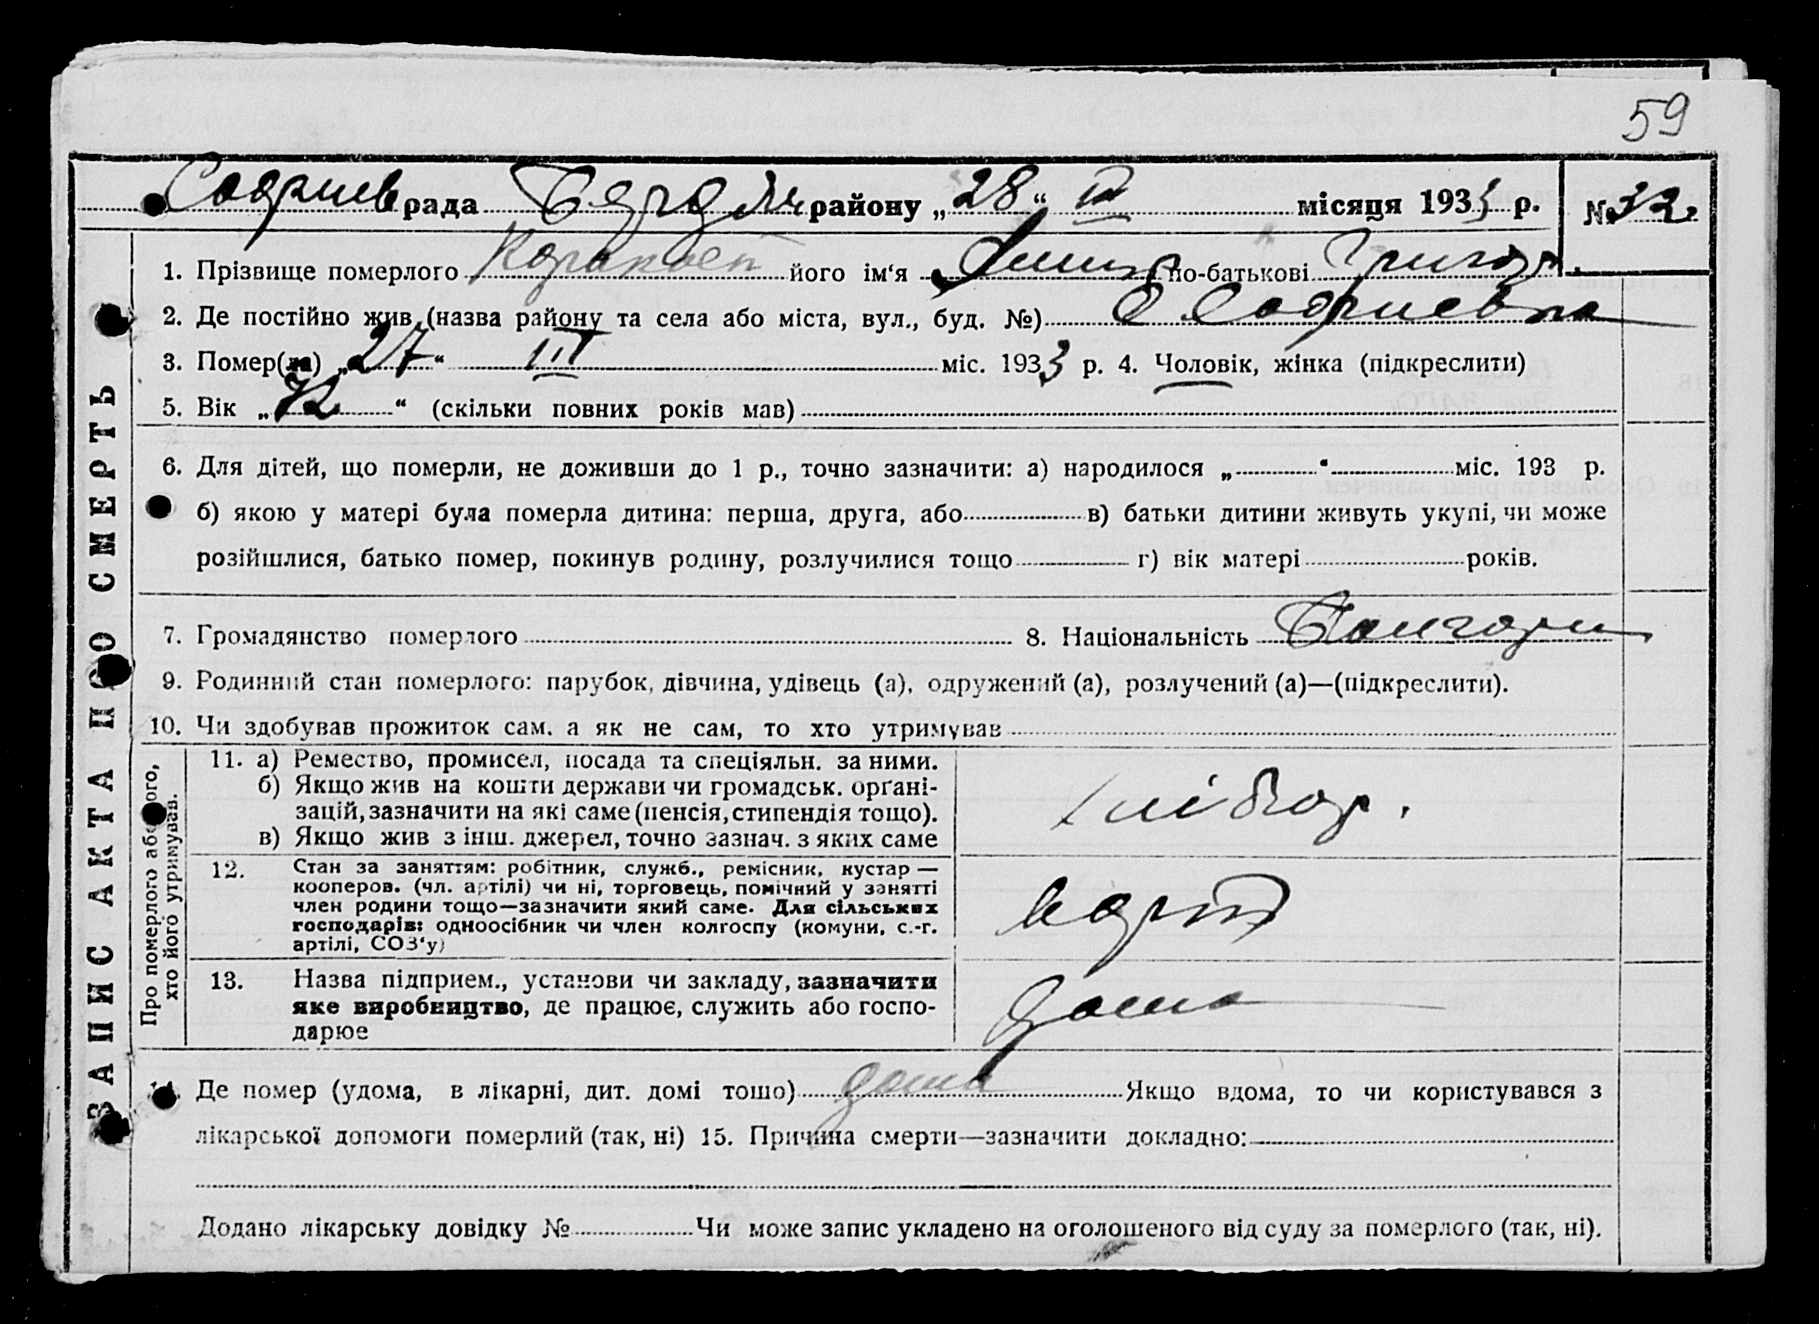 59
рада району „28“ місяця 1933 р. № 32
1. Прізвище померлого його ім‘я по-батькові Григор.
2. Де постійно жив (назва району та села або міста, вул., буд. №)
3. Помер(ла) „27“ III міс. 1933 р. 4. Чоловік, жінка (підкреслити)
5. Вік „72“ (скільки повних років мав)
6. Для дітей, що померли, не доживши до 1 р., точно зазначити: а) народилося „ “ міс. 193 р.
б) якою у матері була померла дитина: перша, друга, або в) батьки дитини живуть укупі, чи може
розійшлися, батько помер, покинув родину, розлучилися тощо г) вік матері років.
7. Громадянство померлого 8. Національність
9. Родинний стан померлого: парубок, дівчина, удівець (а), одружений (а), розлучений (а)—(підкреслити).
10. Чи здобував прожиток сам. а як не сам, то хто утримував
Про померлого або того, хто його утримував.
11. а) Ремество, промисел, посада та спеціяльн. за ними.
б) Якщо жив на кошти держави чи громадськ. органі-
зацій, зазначити на які саме (пенсія, стипендія тощо).
в) Якщо жив з інш. джерел, точно зазнач. з яких саме
хлібор.
12. Стан за заняттям: робітник, служб., ремісник, кустар —
кооперов. (чл. артілі) чи ні, торговець, помічний у занятті
член родини тощо—зазначити який саме. Для сільських
господарів: одноосібник чи член колгоспу (комуни, с.-г.
артілі, СОЗ‘у)
13. Назва підприєм., установи чи закладу, зазначити
яке виробництво, де працює, служить або госпо-
дарює
дома
14. Де помер (удома, в лікарні, дит. домі тощо) дома Якщо вдома, то чи користувався з
лікарської допомоги померлий (так, ні) 15. Причина смерти—зазначити докладно:
Додано лікарську довідку № Чи може запис укладено на оголошеного від суду за померлого (так, ні).
ЗАПИС АКТА ПРО СМЕРТЬ